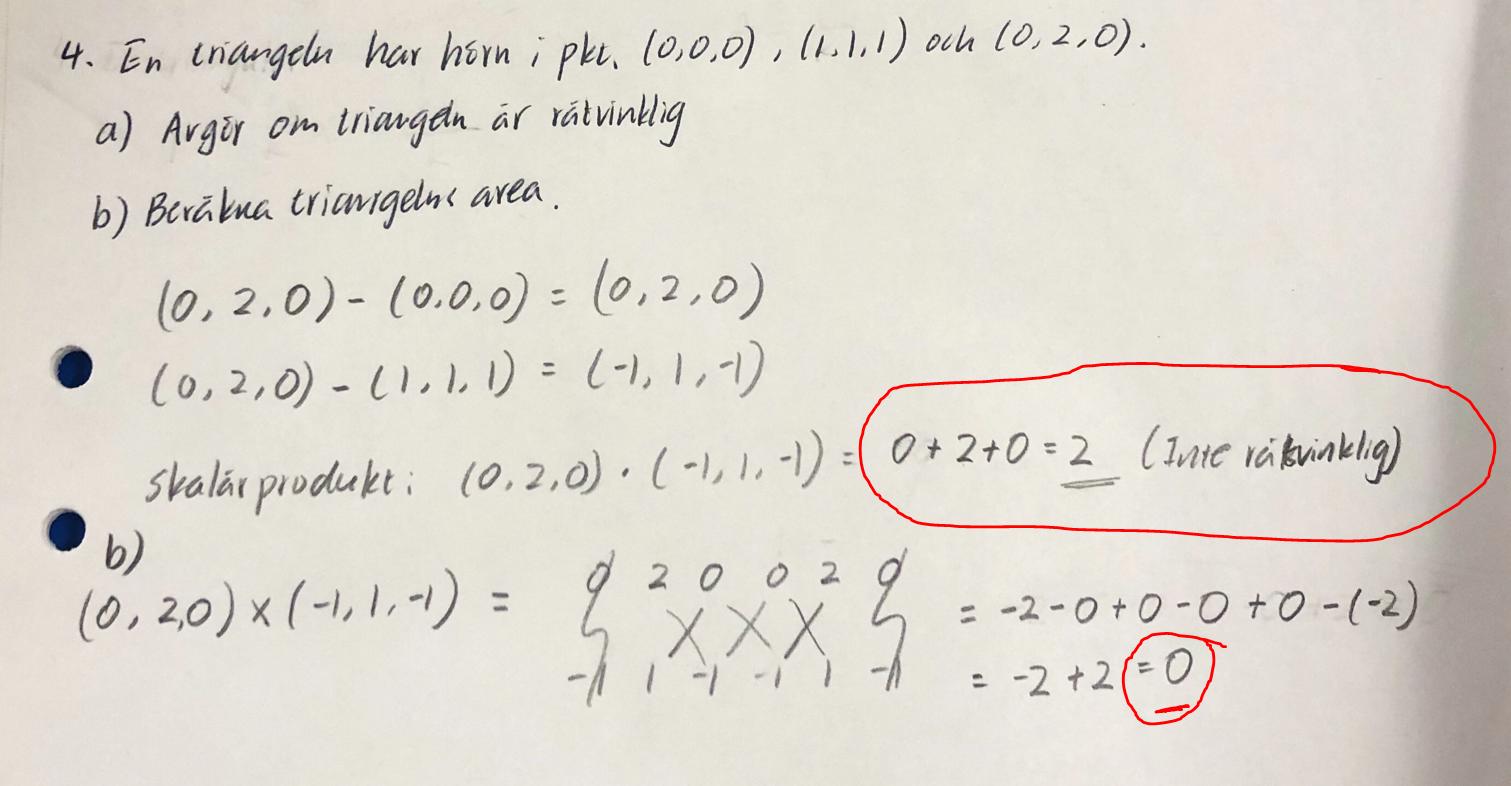 4. En triangeln har hörn i pkt. (0,0,0), (1,1,1) och (0,2,0).
a) Avgör om triangeln är rätvinklig
b) Beräkna triangelns area.
(0, 2, 0) - (0,0,0) = (0, 2, 0)
(0, 2, 0) - (1, 1, 1) = (-1, 1, -1)
Skalärprodukt: (0,2,0) · (-1, 1, -1) = 0 + 2 + 0 = 2 (Inte rätvinklig)
b)
0 2 0 0 2 0
(0, 2,0) x (-1, 1, -1) = = -2 - 0 + 0 - 0 + 0 - (-2)
-1 1 -1 -1 1 -1
= -2 + 2 = 0